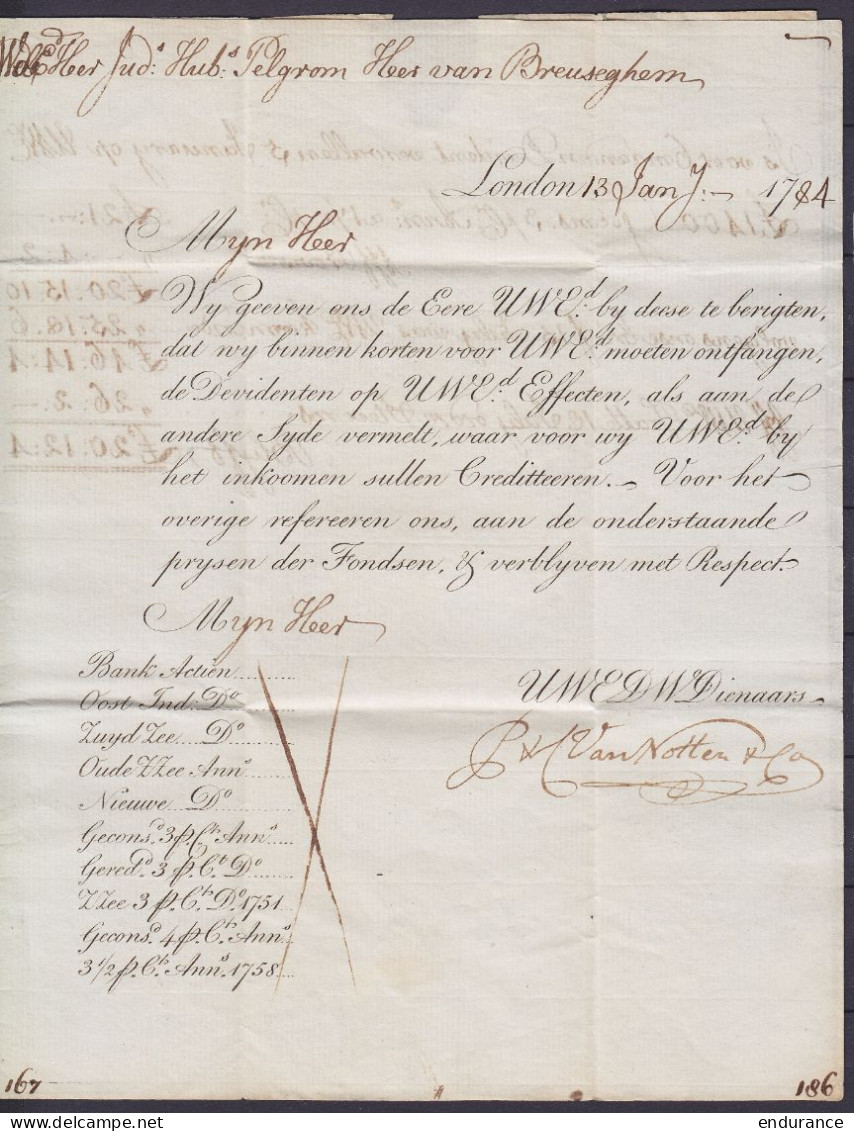 WelEd Heer Juds: Hubs: Pelgrom Heer van Breuseghem
London 13 Jany:~ 1784
Myn Heer
Wy geeven ons de Eere UWEd: by deese te berigten,
dat wy binnen korten voor UWEd: moeten ontfangen,
de Devidenten op UWEd: Effecten, als aan de
andere Syde vermelt, waar voor wy UWEd: by
het inkoomen sullen Creditteeren.~ Voor het
overige refereeren ons, aan de onderstaande
prysen der Fondsen, & verblyven met Respect.
Myn Heer
Bank Actien
Oost Ind: Do
Zuyd Zee Do
Oude ZZee Anns
Nieuwe Do
Geconsd 3 p.Ct Anns
Geredd 3 p.Ct Do
ZZee 3 p.Ct Do 1751
Geconsd 4 p.Ct Anns
3 1/2 p.Ct Anns 1758
UWEDWe Dienaars
P & C Van Notten & Co
167
186
endurance